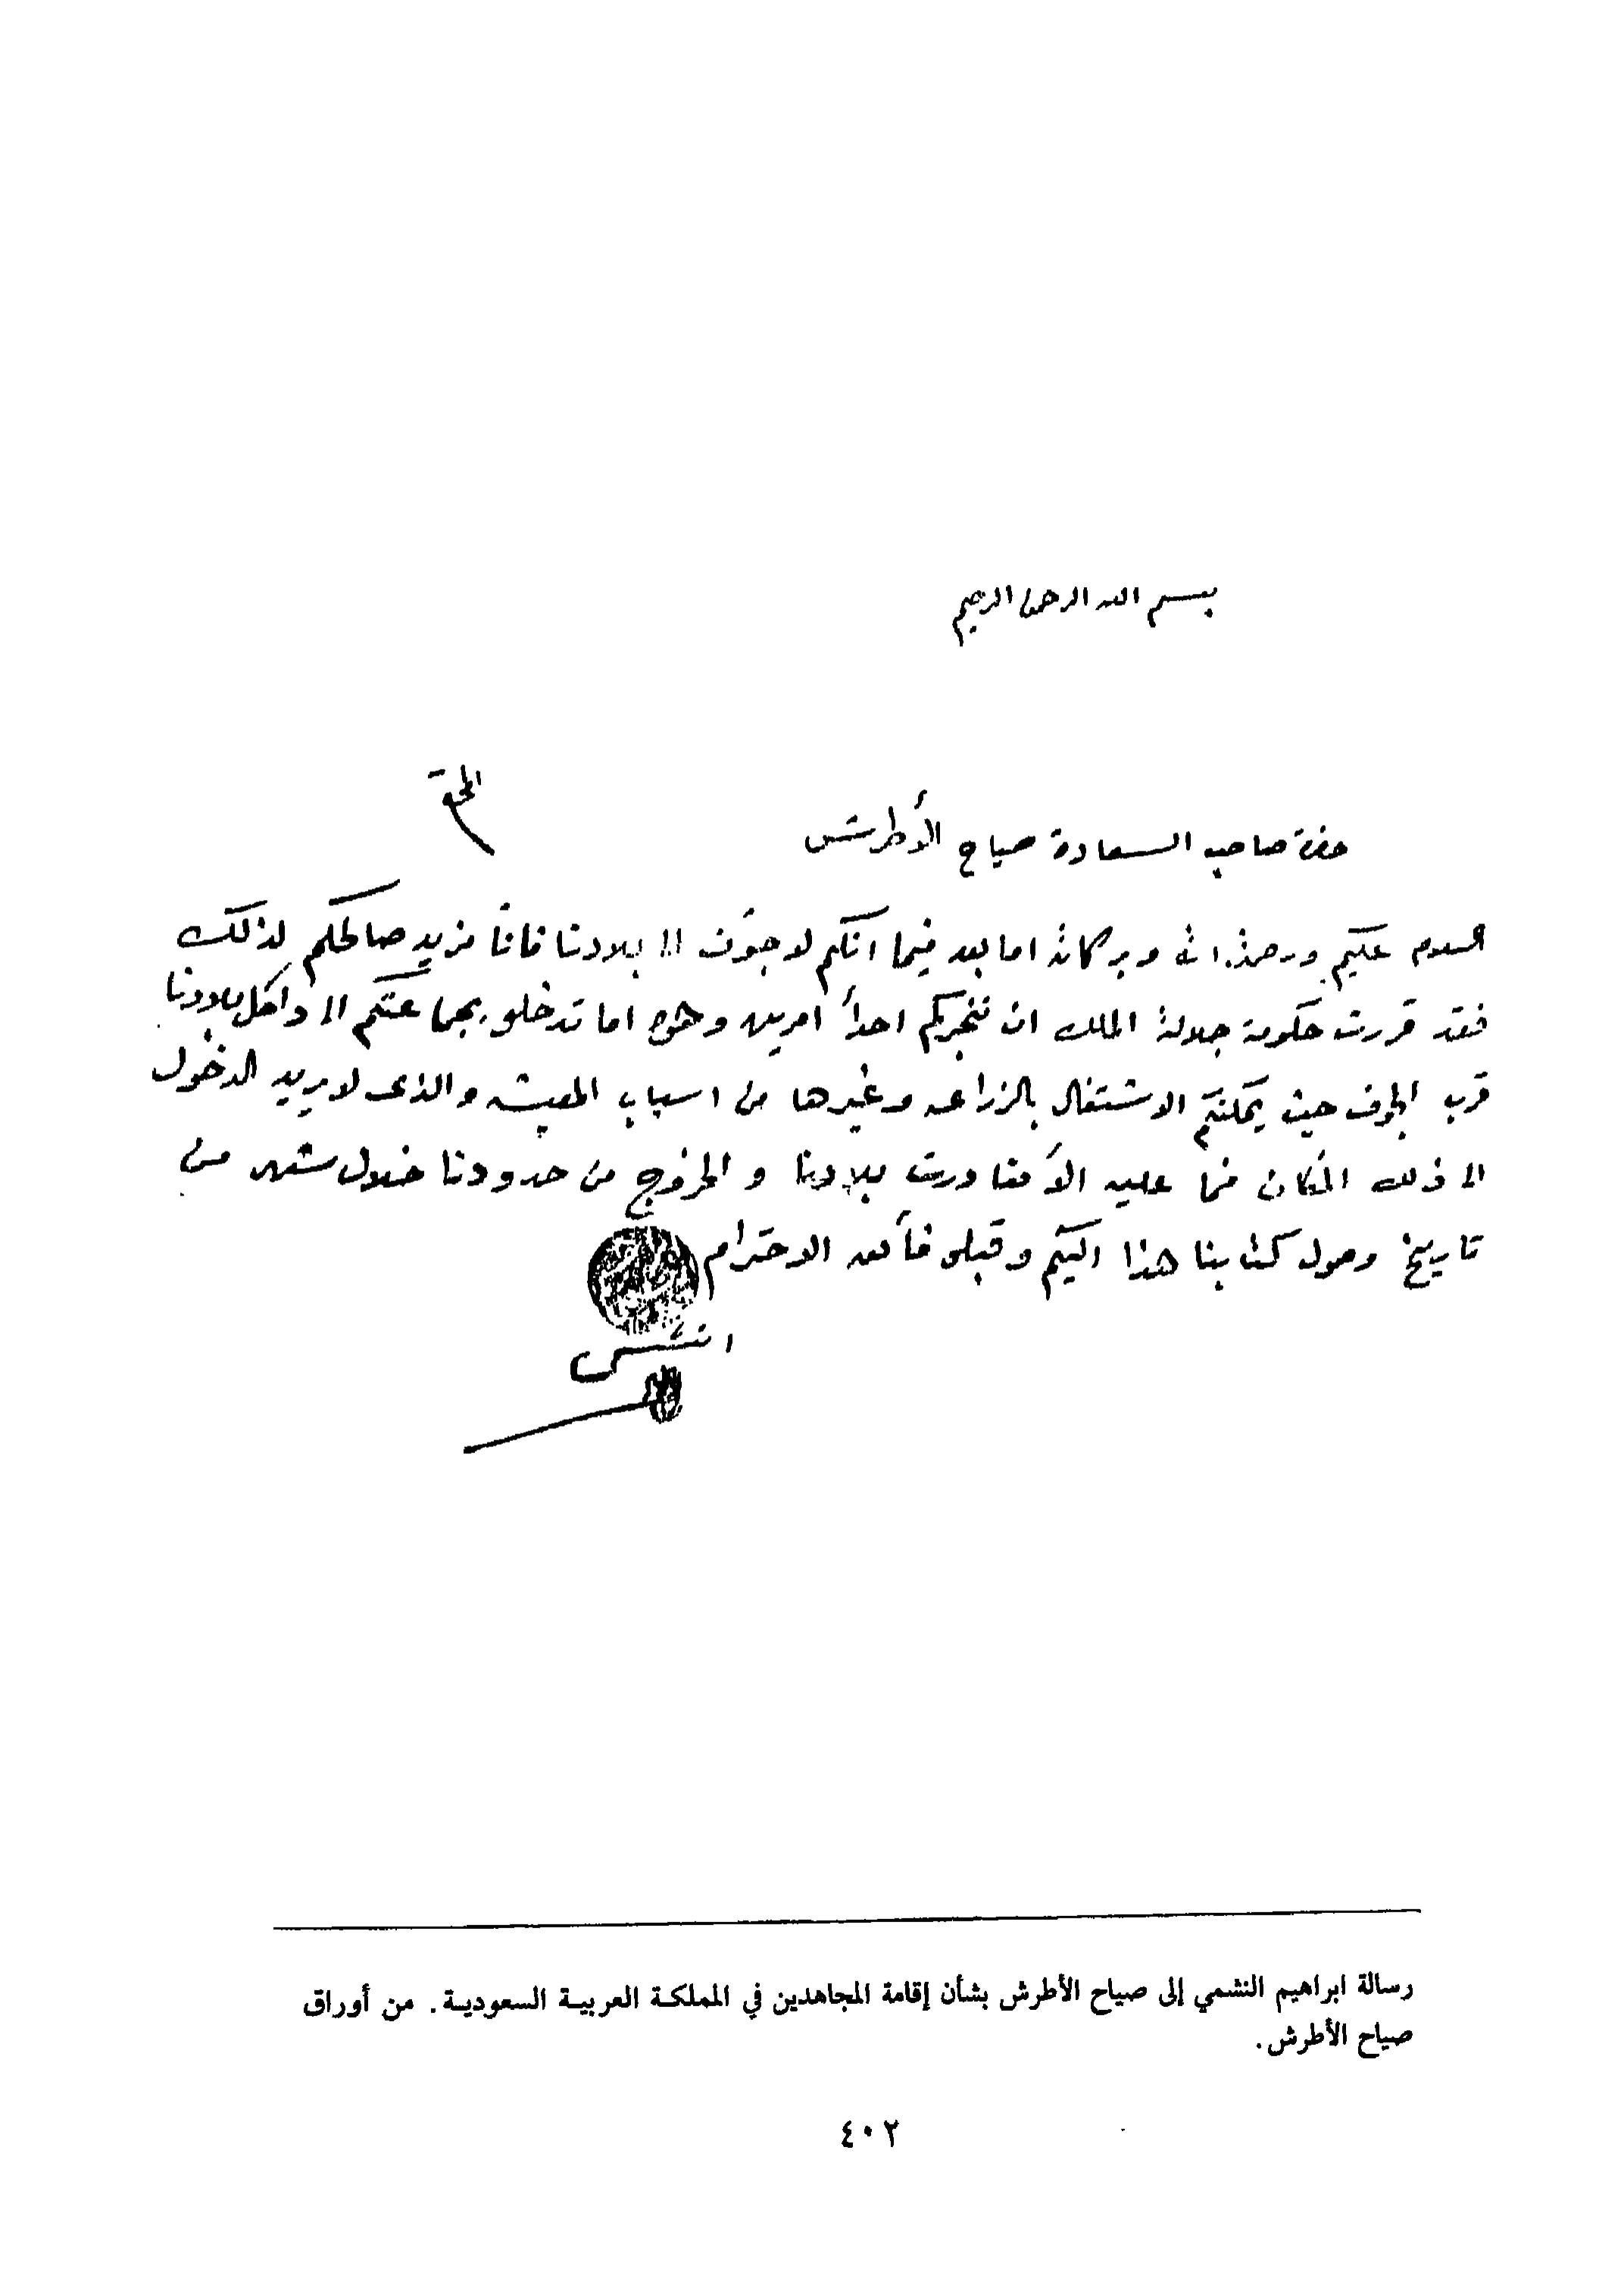 بسم الله الرحمن الرحيم
حضرة صاحب السعادة صياح الأطرش
السلام عليكم ورحمة الله وبركاته اما بعد فيما انكم لاجئون الى بلادنا فاننا نريد صالحكم لذلك
فقد قررت حكومة جلالة الملك ان نخبركم احدأ امرين وهو اما تدخلو بجماعتكم الى داخل بلادنا
قرب الجوف حيث يمكنكم الاشتغال بالزراعه وغيرها من اسباب المعيشه والذى لا يريد الدخول
الى ذلك المكان فما عليه الأ مغادرت بلادنا والخروج من حدودنا خلال شهر من
تاريخ وصول كتابنا هذا اليكم وقبلو فأق الاحترام
رسالة ابراهيم النشمي إلى صياح الأطرش بشأن إقامة المجاهدين في المملكة العربية السعودية. من أوراق
صياح الأطرش.
٤٠٢